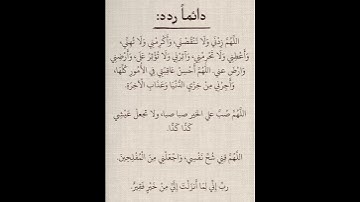 دائماً ردد:
اللَّهُمَّ زِدْنِي وَلَا تَنْقُصْنِي، وَأَكْرِمْنِي وَلَا تُهِنِّي،
وَأَعْطِنِي وَلَا تَحْرِمْنِي، وَآثِرْنِي وَلَا تُؤْثِرْ عَلَيَّ، وَأَرْضِنِي
وَارْضَ عَنِي، اللَّهُمَّ أَحْسِنْ عَاقِبَتِي فِي الْأُمُورِ كُلِّهَا،
وَأَجِرْنِي مِنْ خِزْيِ الدُّنْيَا وَعَذَابِ الْآخِرَةِ.
اللَّهُمَّ صُبَّ عَلَي الخَير صبا صبا، ولا تَجعلْ عَيْشِي
كَدًّا كَدًّا.
اللَّهُمَّ قِنِي شُحَّ نَفْسِي، وَاجْعَلْنِي مِنَ الْمُفْلِحِينَ.
ربِّ إِنِّي لِمَا أَنزَلْتَ إِلَيَّ مِنْ خَيْرٍ فَقِيرٌ.